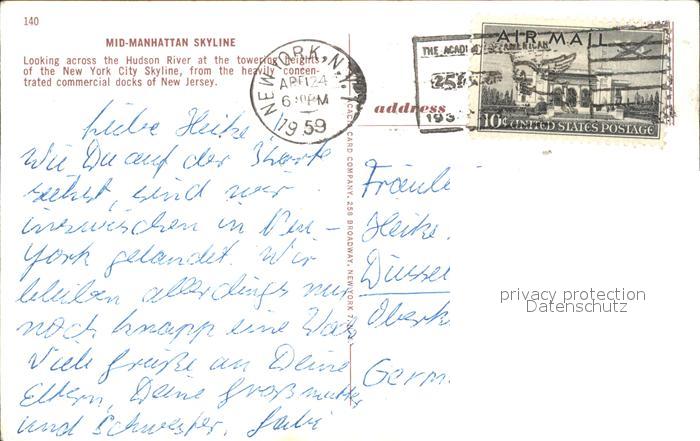 140
MID-MANHATTAN SKYLINE
Looking across the Hudson River at the towering heights
of the New York City Skyline, from the heavily concen-
trated commercial docks of New Jersey.
NEW YORK, N.Y.
APR 24
6 PM
1959
THE ACADEMY AMERICAN
193
AIR MAIL
10¢ UNITED STATES POSTAGE
address
CARD COMPANY, 258 BROADWAY, NEW YORK 7
Liebe Heike
Wie Du auf der Karte
siehst, sind wir
inzwischen in New-
York gelandet. Wir
bleiben allerdings nur
noch knapp eine Woche
Viele Grüße an Deine
Eltern, Deine Großmutter
und Schwester.
Fräule
Heike
Germ.
privacy protection
Datenschutz